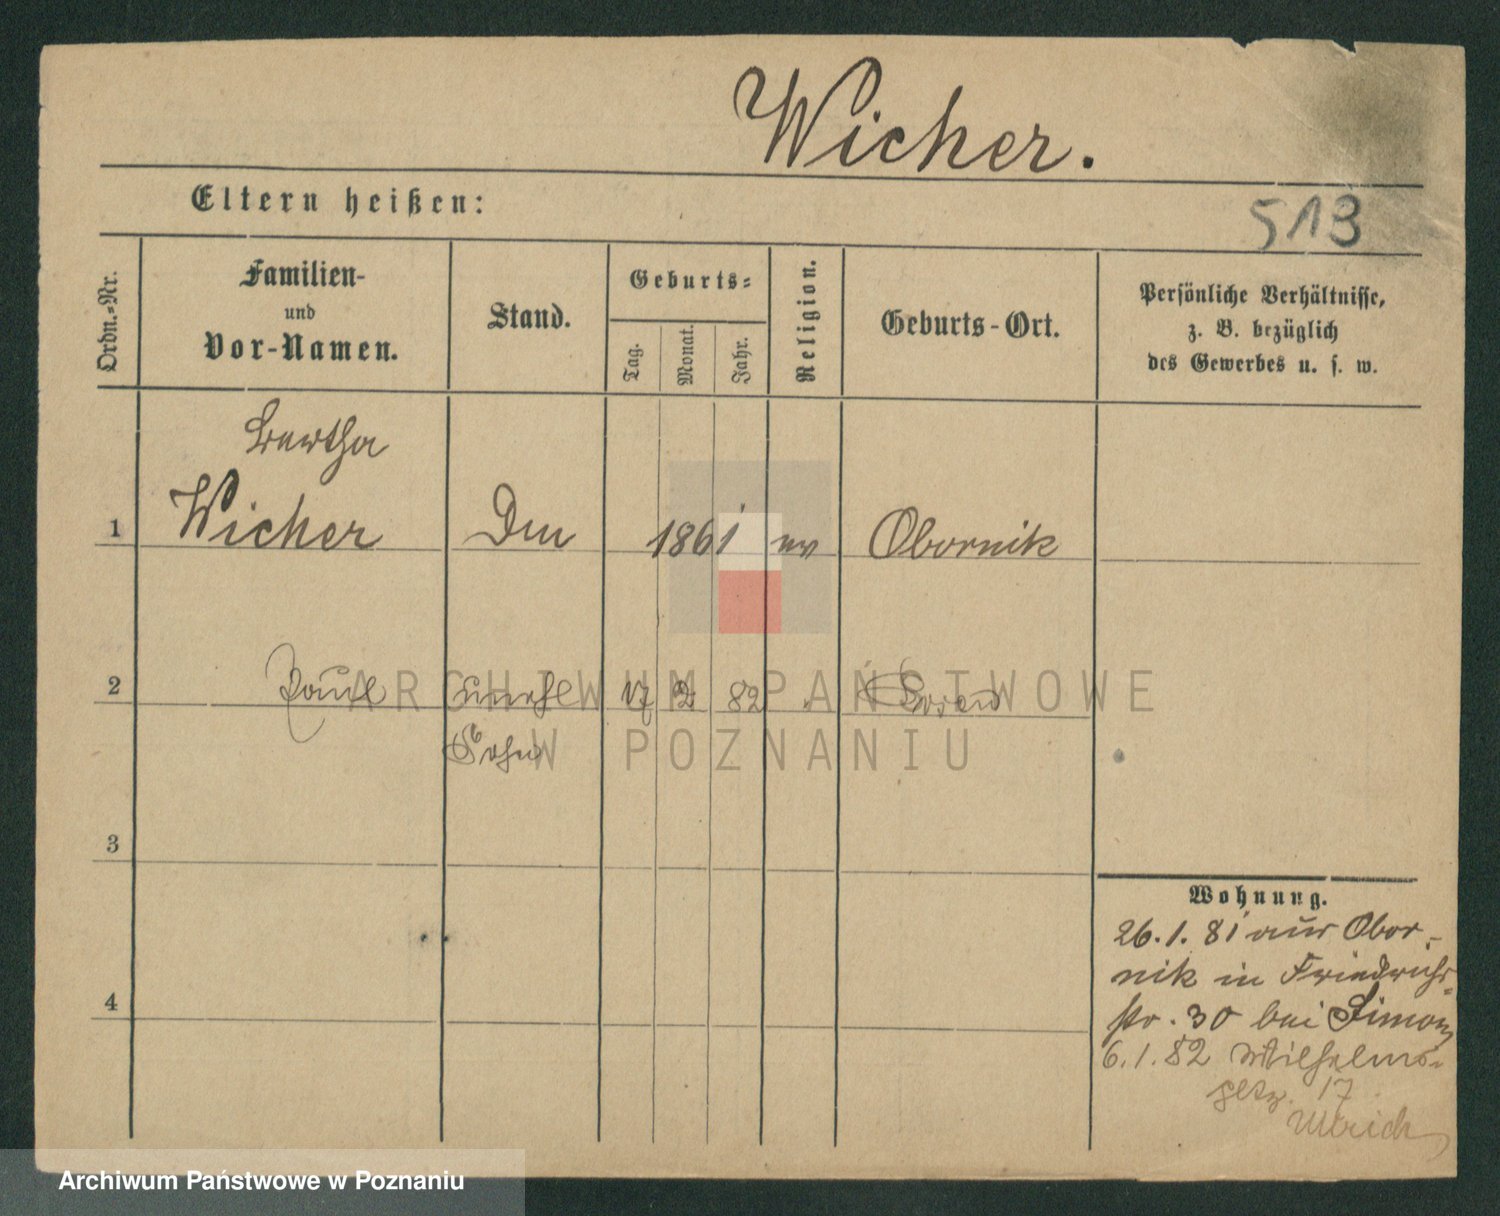 Wicher.
Eltern heißen:
513
Ordn.-Nr.
Familien-
und
Vor-Namen.
Stand.
Geburts-
Tag.
Monat.
Jahr.
Religion.
Geburts-Ort.
Persönliche Verhältnisse,
z. B. bezüglich
des Gewerbes u. s. w.
Bertha
1 Wicher 1861 ev Obornik
2 Paul unehl 17 2 82 Posen
Sohn
3
4
Wohnung.
26.1.81 aus Obor-
nik in Friedrichs-
str. 30 bei Simon
6.1.82 Wilhelms-
pltz. 17
Ullrich
ARCHIWUM PAŃSTWOWE
W POZNANIU
Archiwum Państwowe w Poznaniu